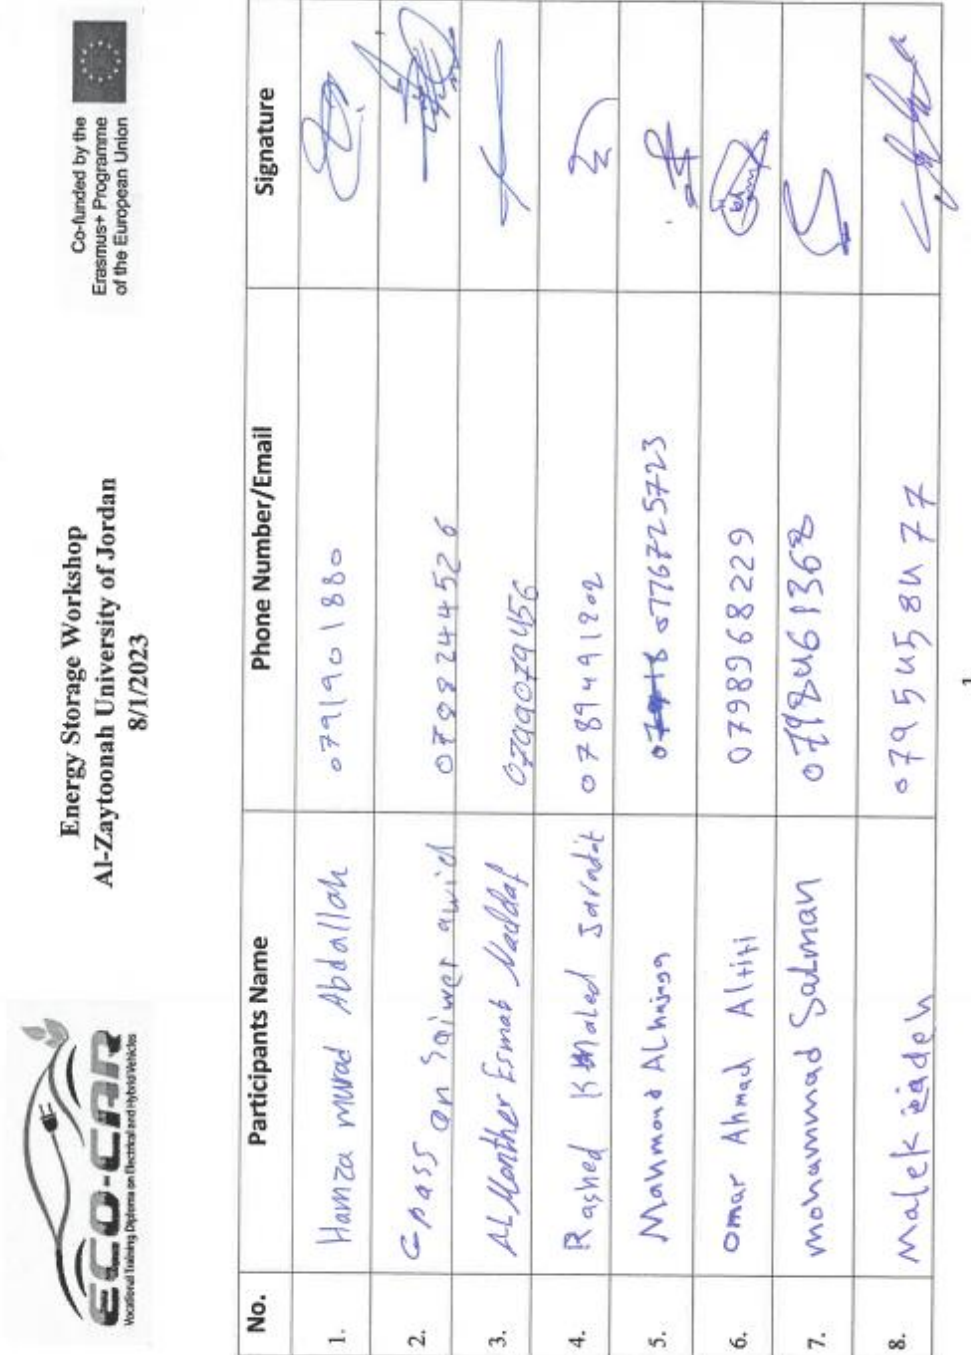 ECO-CAR
Vocational Training Diploma on Electrical and Hybrid Vehicles
Energy Storage Workshop
Al-Zaytoonah University of Jordan
8/1/2023
Co-funded by the
Erasmus+ Programme
of the European Union
No. Participants Name Phone Number/Email Signature
1. Hamza murad Abdallah 0791901880
2. 0788244526
3. AL Monther Esmat Naddaf 0799079456
4. Rashed Khaled 0789491202
5. Mahmoud 0776725723
6. Omar Ahmad Altiti 0798968229
7. mohammad Salman
8. Malek 0795458477
1